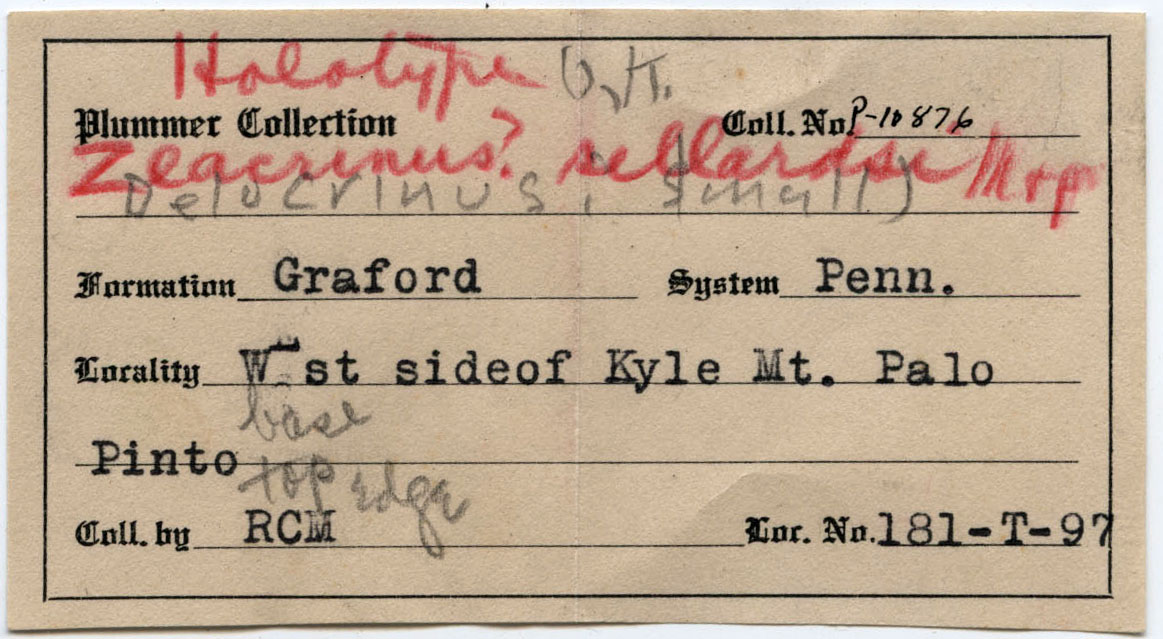 Holotype
Plummer Collection Coll. No. P-10876
Zeacrinus? sellardsi M+P
Delocrinus, small
Formation Graford System Penn.
Locality W st sideof Kyle Mt. Palo
base
Pinto
top edge
Coll. by RCM Loc. No. 181-T-97